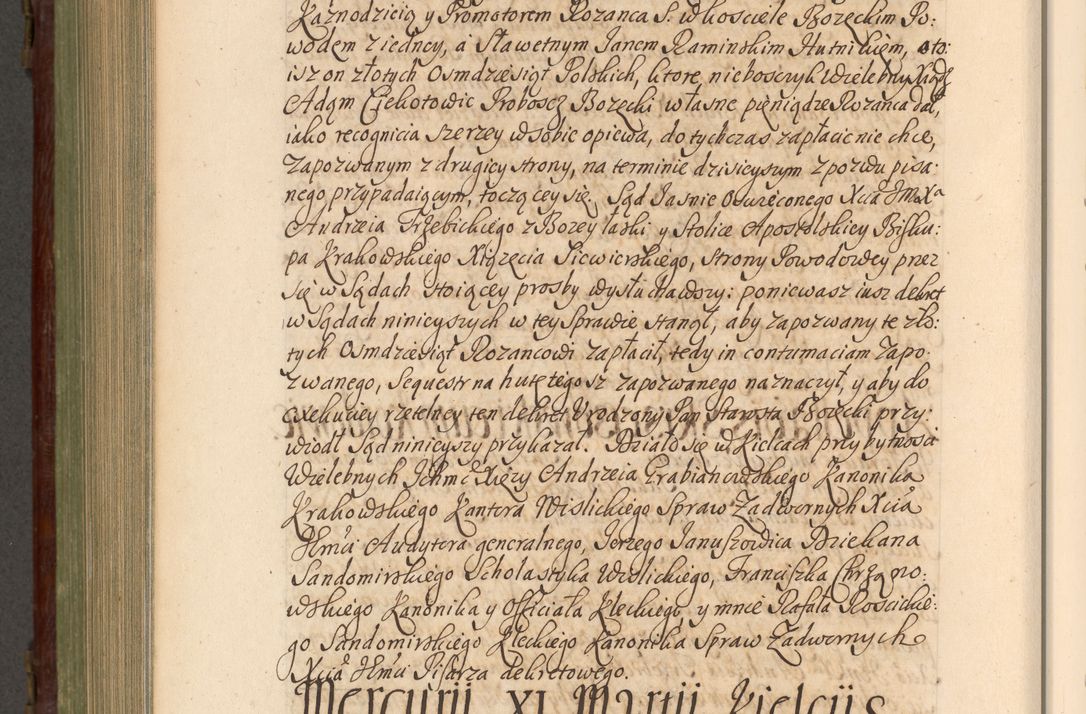 Kaznodzieią y Promotorem Rozanca S. w kosciele Bozęckim Po:
wodem z iedney, á Sławetnym Janem Kaminskim Hutnikiem, o to:
isz on złotych Osmdziesiąt Polskich, ktore nieboszczyk Wielebny Xiądz
Adąm Ciekotowic Proboscz Bozęcki własne pieniądze Rozanca dał,
iako recognicia szerzey w sobie opiewa, do tychczas zapłacic nie chce,
zapozwanym z drugiey strony, na terminie dzisieyszym z pozwu pisa:
nego przypadaiącym, toczącey się. Sąd Jasnie Oswieconego Xcia Jmci Xa
Andrzeia Trzebickiego z Bozey łaski y Stolice Apostolskiey Bisku:
pa Krakowskiego Xiązęcia Siewierskiego, strony Powodowey przez
się w Sądach stoiącey prosby wysłuchawszy: poniewasz iusz dekret
w Sądach ninieyszych w tey Sprawie stanął, aby zapozwany te zło:
tych Osmdziesiąt Rozancowi zapłacił, tedy in contumaciam zapo:
zwanego, Sequestr na hutę tegosz zapozwanego naznaczył, y aby do
exekuciey rzetelney ten dekret Urodzony Pan Starosta Bozęcki przy:
wiodł Sąd ninieyszy przykazał. Działo się w Kielcach przy bytnosci
Wielebnych Ichmć Xięzy Andrzeia Grabianowskiego Kanonika
Krakowskiego Kantora Wislickiego Spraw Zadwornych Xcia
Jmci Audytora generalnego, Jerzego Januszowica Dziekana
Sandomirskiego Scholastyka Wislickiego, Franciszka Chrząno:
wskiego Kanonika y Officiała Kieckiego y mnie Rafała Kościckie:
go Sandomirskiego Kieckiego Kanonika Spraw Zadwornych
Xcia Jmci Pisarza dekretowego.
Mercurii XI Martii Kielciis